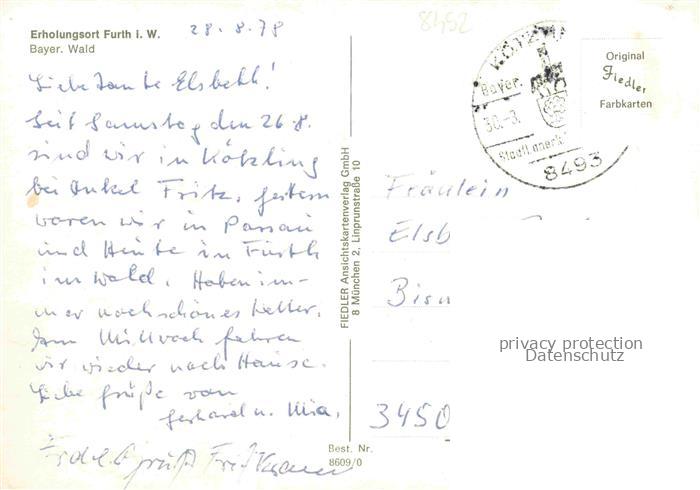 Erholungsort Furth i. W.
Bayer. Wald
28.8.78
8452
Liebe Tante Elsbeth!
Seit Samstag den 26.8.
sind wir in Kötzting
bei Onkel Fritz, gestern
waren wir in Passau
und Heute in Furth
im Wald. Haben im-
mer noch schönes Wetter.
Am Mittwoch fahren
wir wieder nach Hause.
Liebe Grüße von
Gerhard u. Mia.
grüßt Fritz
FIEDLER Ansichtskartenverlag GmbH
8 München 2, Linprunstraße 10
Best. Nr.
8609/0
Bayer.
30.-8.
8493
Original
Fiedler
Farbkarten
Fräulein
Elsb
3450
privacy protection
Datenschutz